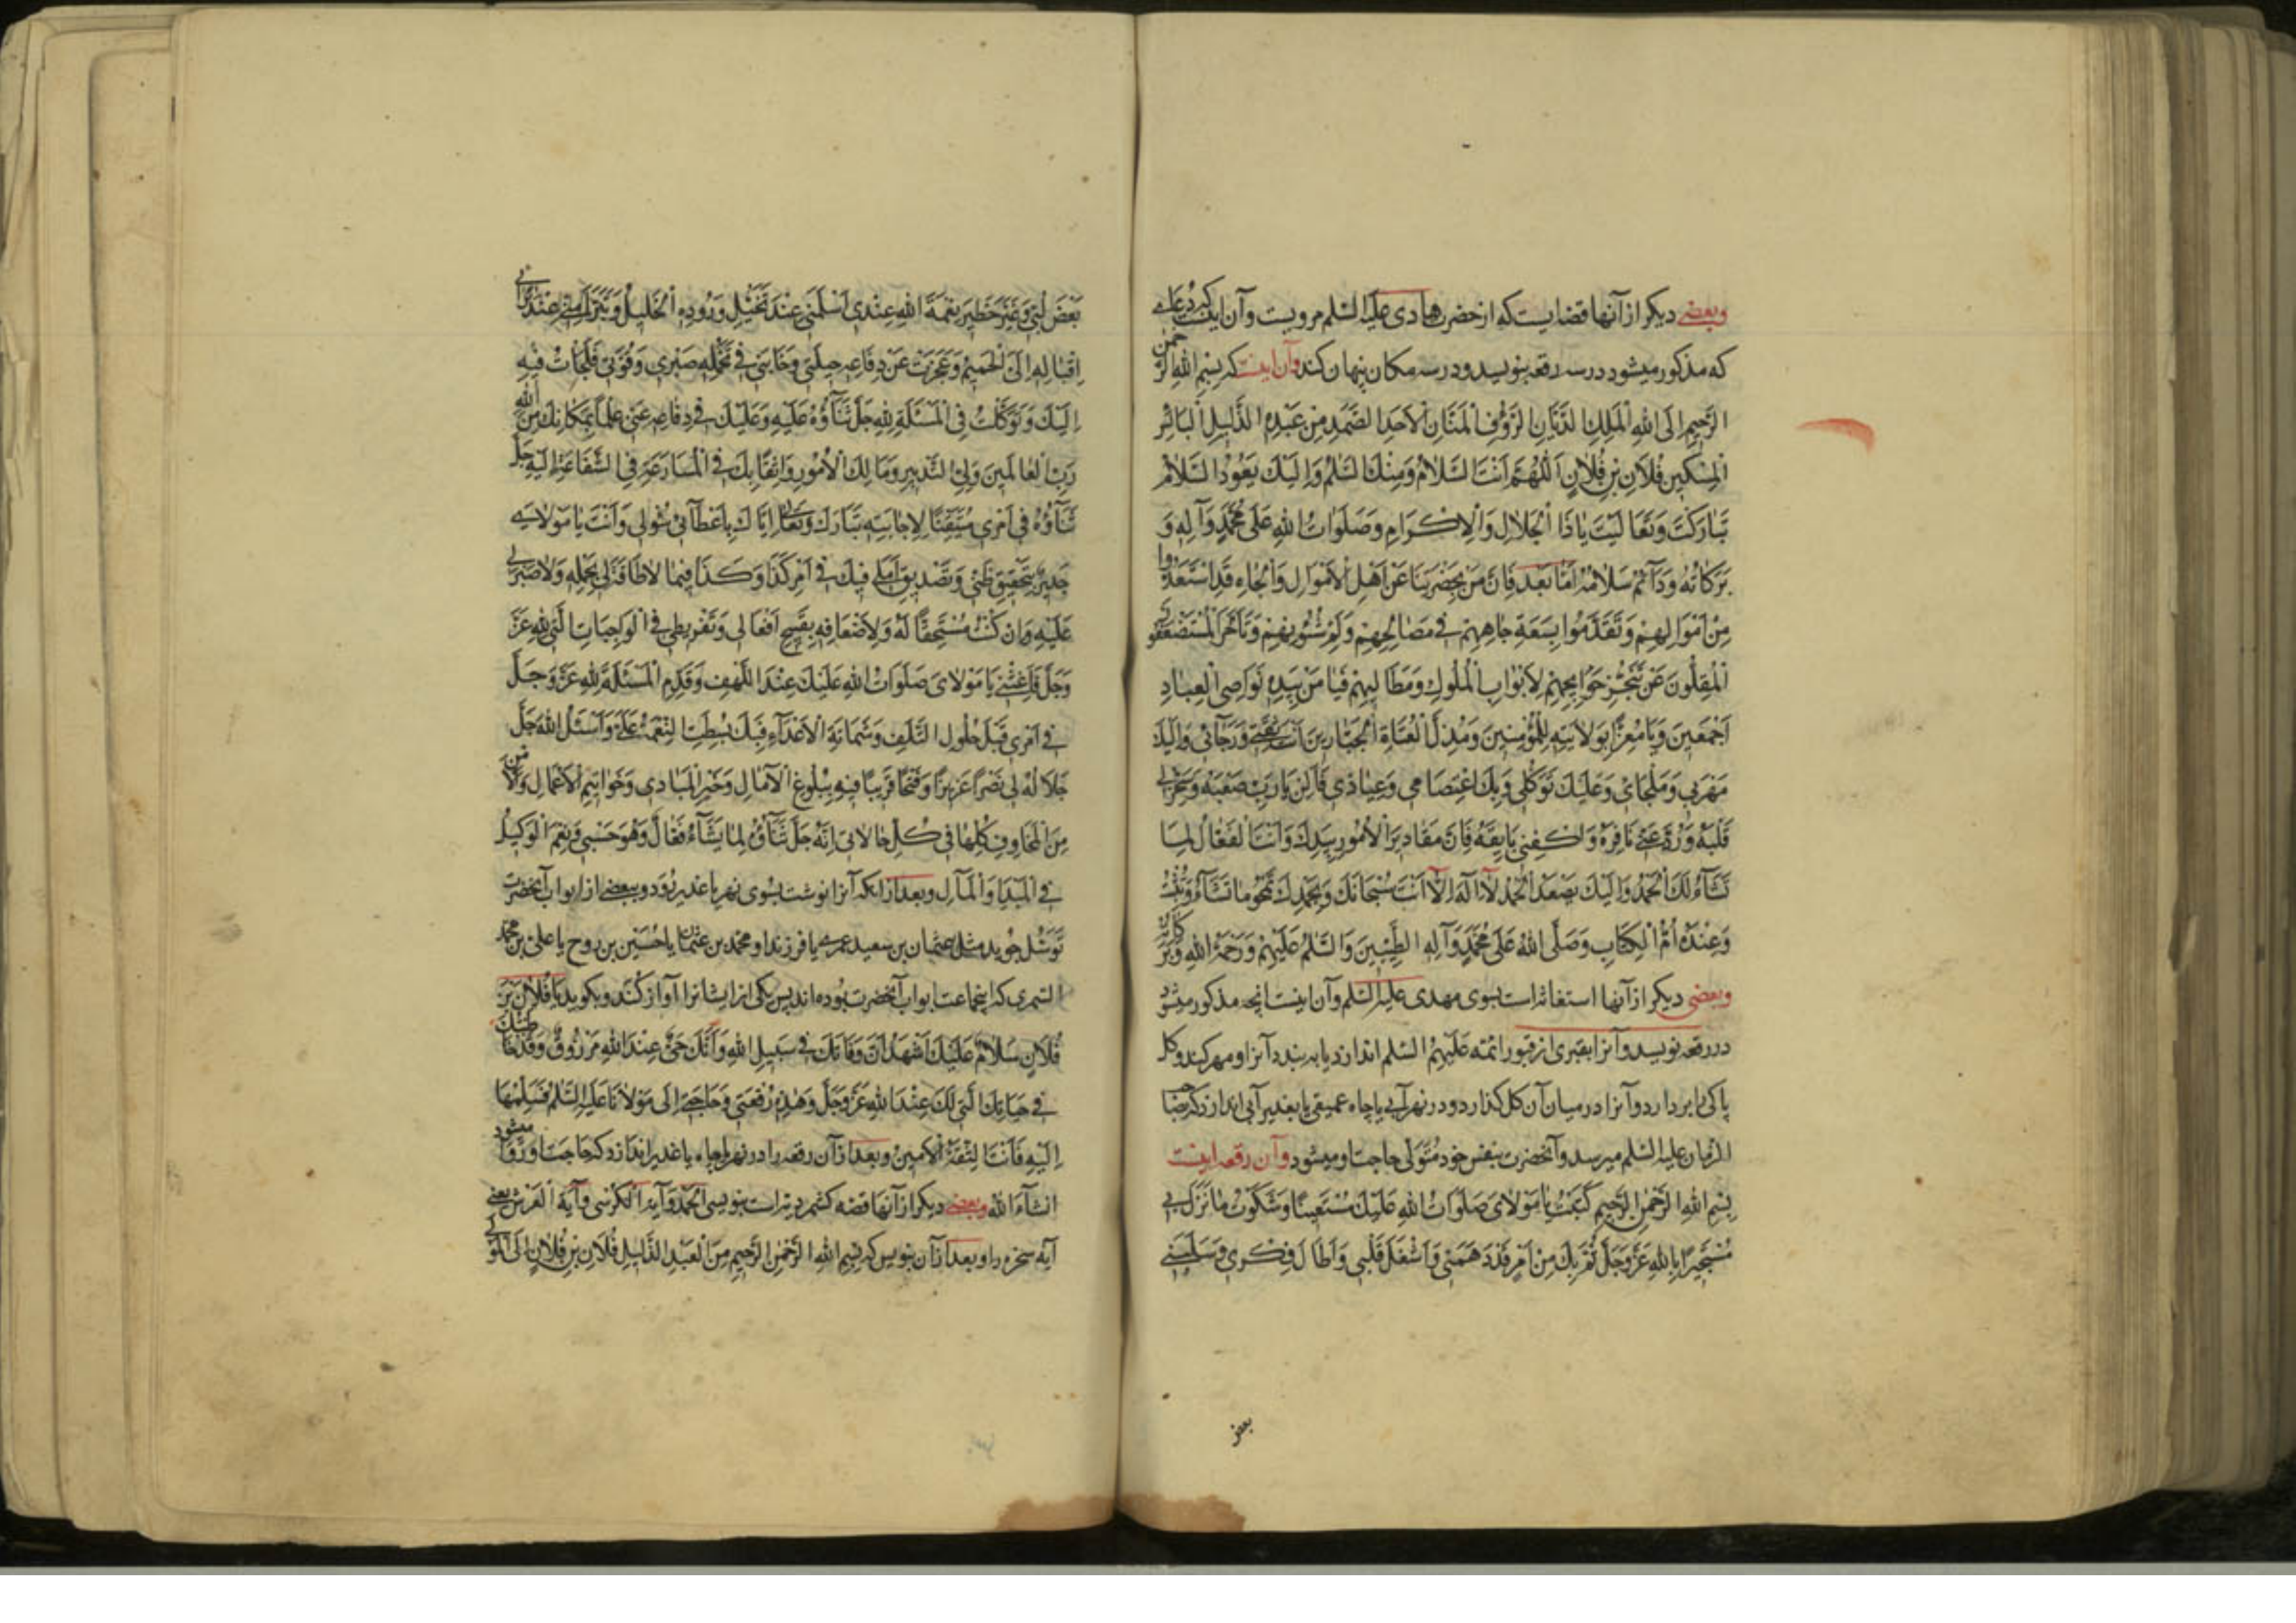 وبعضی دیکر از آنها قضایست که از حضرت هادی علیه السلم مرویست وآن اینست که دعای
که مذکور میشود در سه رقعه بنویسد ودر سه مکان پنهان کند وآن اینست که بسم الله الرحمن
الرَّحِيمِ اِلَى اللهِ الْمَلِكِ الدَّيَّانِ الرَّؤُفِ الْمَنَّانِ الْاَحَدِ الصَّمَدِ مِن عَبْدِهِ الذَّلِيلِ الْبَائِسِ
الْمِسْكِينِ فُلَانِ بْنِ فُلَانٍ اَللّٰهُمَّ اَنْتَ السَّلَامُ وَمِنْكَ السَّلٰمُ وَاِلَيْكَ يَعُودُ السَّلَامُ
تَبَارَكْتَ وَتَعَالَيْتَ يَاذَا الْجَلَالِ وَالْاِكْرَامِ وَصَلَوَاتُ اللهِ عَلَى مُحَمَّدٍ وَآلِهِ وَ
بَرَكَاتُهُ وَدَآئِمُ سَلَامُهُ اَمَّا بَعْد فَاِنَّ مَنْ بِحَضْرَتِنَا مِنْ اَهْلِ الْاَمْوَالِ وَالْجَاهِ قَدِ اسْتَعَدُّوا
مِنْ اَمْوَالِهِمْ وَتَقَدَّمُوا بِسَعَةِ جَاهِهِمْ فِي مَصَالِحِهِمْ وَلَمِّ شُئُونِهِمْ وَتَاَخَّرَ الْمُسْتَضْعَفُونَ
الْمُقِلُّونَ عَنْ تَنَجُّزِ حَوَآيِجِهِمْ لِاَبْوَابِ الْمُلُوكِ وَمَطَالِبِهِمْ فَيَا مَنْ بِيَدِهِ نَوَاصِي الْعِبَادِ
اَجْمَعِينَ وَيَا مُعِزًّا بِوِلَايَتِهِ لِلْمُؤْمِنِينَ وَمُذِلَّ الْعُتَاةِ الْجَبَّارِينَ اَنْتَ ثِقَتِي وَرَجَآئِي وَاِلَيْكَ
مَهْرَبِي وَمَلْجَاىَ وَعَلَيْكَ تَوَكُّلِي وَبِكَ اعْتِصَامِي وَعِيَاذِي فَاَلِنْ يَارَبِّ صَعْبَهُ وَسَخِّرْ لِي
قَلْبَهُ وَرُدَّ عَنِّي نَافِرَهُ وَاكْفِنِي بَايِقَهُ فَاِنَّ مَقَادِيرَ الْاُمُورِ بِيَدِكَ وَاَنْتَ الْفَعَّالُ لِمَا
تَشَآءُ لَكَ الْحَمْدُ وَاِلَيْكَ يَصْعَدُ الْحَمْدُ لَا اِلَهَ اِلَّا اَنْتَ سُبْحَانَكَ وَبِحَمْدِكَ تَمْحُو مَا تَشَآءُ وَتُثْبِتُ
وَعِنْدَهُ اُمُّ الْكِتَابِ وَصَلَّى اللهُ عَلَى مُحَمَّدٍ وَآلِهِ الطَّيِّبِينَ وَالسَّلٰمُ عَلَيْهِمْ وَرَحْمَةُ اللهِ وَبَرَكَاتُهُ
وبعضی دیکر از آنها استغاثه است بسوی مهدی علیه السلم وآن اینست انچه مذکور میشود
در رقعه نویسد وآنرا بقبری از قبور ائمه علیهم السلم اندازد یا به بندد آنرا ومهر کند وکل
پاکی را بردارد وآنرا در میان آن کل کذارد ودر نهر آبی یا چاه عمیقی یا بغدیر آبی اندازد که بصاحب
الزمان علیه السلم میرسد وآنحضرت بنفس خود متولی حاجت او میشود وآن رقعه اینست
بِسْمِ اللهِ الرَّحْمٰنِ الرَّحِيمِ كَتَبْتُ يَا مَوْلَاىَ صَلَوَاتُ اللهِ عَلَيْكَ مُسْتَغِيثًا وَشَكَوْتُ مَا نَزَلَ بِي
مُسْتَجِيرًا بِاللهِ عَزَّوَجَلَّ ثُمَّ بِكَ مِنْ اَمْرٍ قَدْ دَهَمَنِي وَاَشْغَلَ قَلْبِي وَاَطَالَ فِكْرِي وَسَلَبَنِي
بعض
بَعْضَ لُبِّي وَغَيَّرَ خَطِيرَ نِعْمَةِ اللهِ عِنْدِي اَسْلَمَنِي عِنْدَ تَخَيُّلِ وُرُودِهِ الْخَلِيلُ وَتَبَرَّأَ مِنِّي عِنْدَ تَرَائِي
اِقْبَالِهِ اِلَىَّ الْحَمِيمُ وَعَجَزَتْ عَنْ دِفَاعِهِ حِيلَتِي وَخَانَنِي فِي تَحَمُّلِهِ صَبْرِي وَقُوَّتِي فَلَجَأْتُ فِيهِ
اِلَيْكَ وَتَوَكَّلْتُ فِي الْمَسْئَلَةِ لِلّٰهِ جَلَّ ثَنَآؤُهُ عَلَيْهِ وَعَلَيْكَ فِي دِفَاعِهِ عَنِّي عِلْمًا بِمَكَانِكَ مِنَ اللهِ
رَبِّ الْعَالَمِينَ وَلِيِّ التَّدْبِيرِ وَمَالِكِ الْاُمُورِ وَاثِقًا بِكَ فِي الْمُسَارَعَةِ فِي الشَّفَاعَةِ اِلَيْهِ جَلَّ
ثَنَآؤُهُ فِي اَمْرِي مُتَيَقِّنًا لِاِجَابَتِهِ تَبَارَكَ وَتَعَالَى اِيَّاكَ بِاِعْطَآئِي سُؤْلِي وَاَنْتَ يَا مَوْلَاىَ
جَدِيرٌ بِتَحْقِيقِ ظَنِّي وَتَصْدِيقِ اَمَلِي فِيكَ فِي اَمْرِ كَذَا وَكَذَا فِيمَا لَا طَاقَةَ لِي بِحَمْلِهِ وَلَا صَبْرَ لِي
عَلَيْهِ وَاِنْ كُنْتُ مُسْتَحِقًّا لَهُ وَلِاَضْعَافِهِ بِقَبِيحِ اَفْعَالِي وَتَفْرِيطِي فِي الْوَاجِبَاتِ الَّتِي لِلّٰهِ عَزَّ
وَجَلَّ فَاَغِثْنِي يَا مَوْلَاىَ صَلَوَاتُ اللهِ عَلَيْكَ عِنْدَ اللَّهْفِ وَقَدِّمِ الْمَسْئَلَةَ لِلّٰهِ عَزَّ وَجَلَّ
فِي اَمْرِي قَبْلَ حُلُولِ التَّلَفِ وَشَمَاتَةِ الْاَعْدَآءِ فَبِكَ بُسِطَتِ النِّعْمَةُ عَلَيَّ وَاَسْئَلُ اللهَ جَلَّ
جَلَالُهُ لِي نَصْرًا عَزِيزًا وَفَتْحًا قَرِيبًا فِيهِ بُلُوغُ الْآمَالِ وَخَيْرُ الْمَبَادِي وَخَوَاتِيمُ الْاَعْمَالِ وَالْاَمْنُ
مِنَ الْمَخَاوِفِ كُلِّهَا فِي كُلِّ حَالٍ اِنَّهُ جَلَّ ثَنَآؤُهُ لِمَا يَشَآءُ فَعَّالٌ وَهُوَ حَسْبِي وَنِعْمَ الْوَكِيلُ
فِي الْمَبْدَاِ وَالْمَآلِ وبعد از انکه آنرا نوشت بسوی نهر یا غدیر رود وببعضی از ابواب آنحضرت
توسل جوید مثل عثمان بن سعید عمری یا فرزند او محمد بن عثمان یا حسین بن روح یا علی بن محمد
السمری که اینجماعت ابواب آنحضرت بوده اند پس یکی از ایشانرا آواز کند وبکوید یَا فُلَانَ بْنَ
فُلَانٍ سَلَامٌ عَلَيْكَ اَشْهَدُ اَنَّ وَفَاتَكَ فِي سَبِيلِ اللهِ وَاَنَّكَ حَيٌّ عِنْدَ اللهِ مَرْزُوقٌ وَقَدْ خَاطَبْتُكَ
فِي حَيَاتِكَ الَّتِي لَكَ عِنْدَ اللهِ عَزَّوَجَلَّ وَهٰذِهِ رُقْعَتِي وَحَاجَتِي اِلَى مَوْلَانَا عَلَيْهِ السَّلٰمُ فَسَلِّمْهَا
اِلَيْهِ فَاَنْتَ الثِّقَةُ الْاَمِينُ وبعد از آن رقعه را در نهر یا چاه یا غدیر اندازد که حاجت او روا میشود
انشآء الله وبعضی دیکر از آنها قصه کشمردیه است بنویسی الحمد وآیة الکرسی وآیة العرش یعنی
آیه سخره را وبعد از آن بنویس که بِسْمِ اللهِ الرَّحْمٰنِ الرَّحِيمِ مِنَ الْعَبْدِ الذَّلِيلِ فُلَانِ بْنِ فُلَانٍ اِلَى الْمَوْلَى